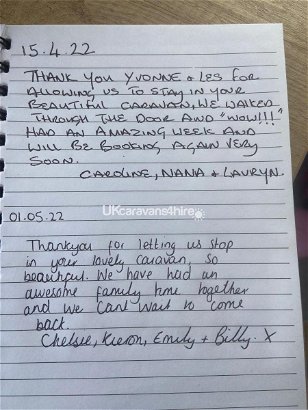 15.4.22
THANK YOU YVONNE + LES FOR
ALLOWING US TO STAY IN YOUR
BEAUTIFUL CARAVAN, WE WALKED
THROUGH THE DOOR AND "WOW!!!"
HAD AN AMAZING WEEK AND
WILL BE BOOKING AGAIN VERY
SOON.
CAROLINE, NANA + LAURYN.
UKcaravans4hire
01.05.22
Thankyou for letting us stop
in your lovely caravan, so
beautiful. We have had an
awesome family time together
and we cant wait to come
back.
Chelsie, Kieron, Emily + Billy. X